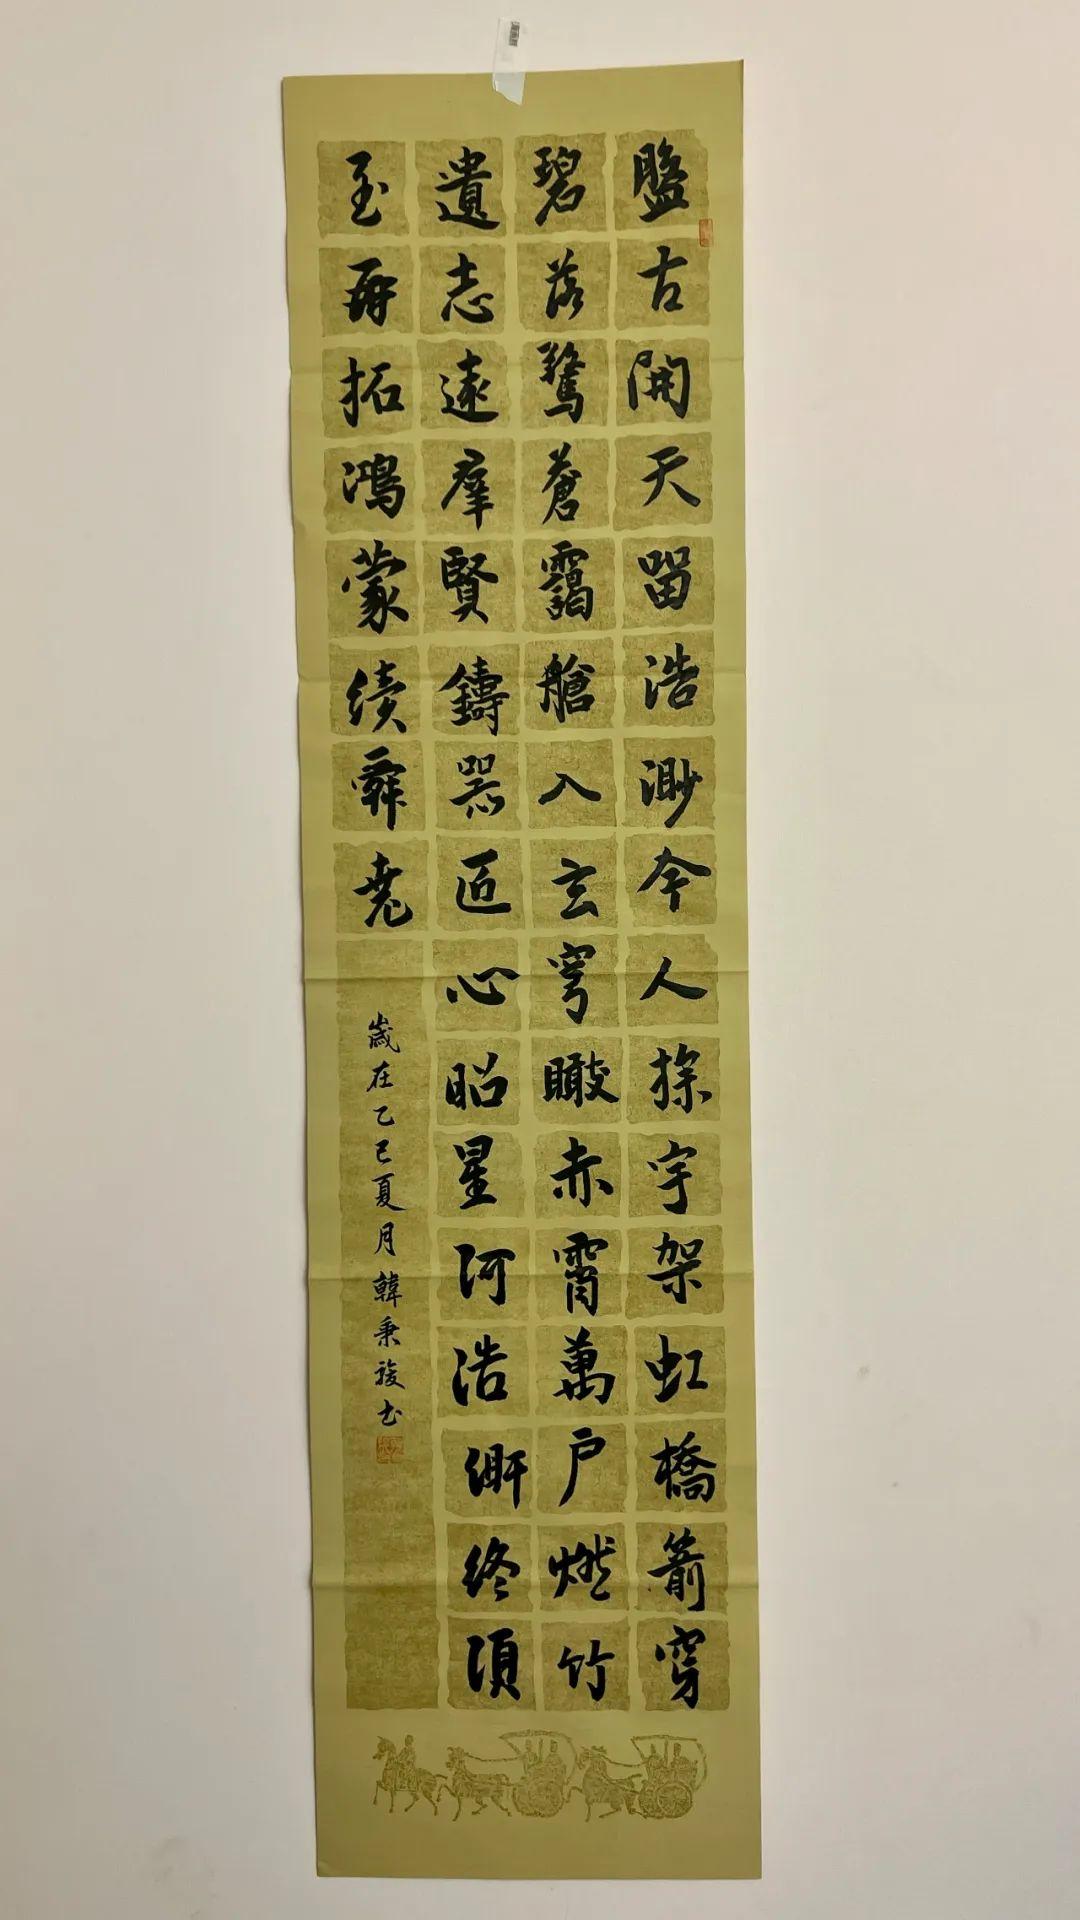 盤古開天留浩渺今人探宇架虹橋箭穿
碧落驚蒼靄艙入玄穹瞰赤霄萬户燃竹
遺志遠群賢鑄器匠心昭星河浩瀚終須
至再拓鴻蒙續舜堯
歲在乙巳夏月韓秉书